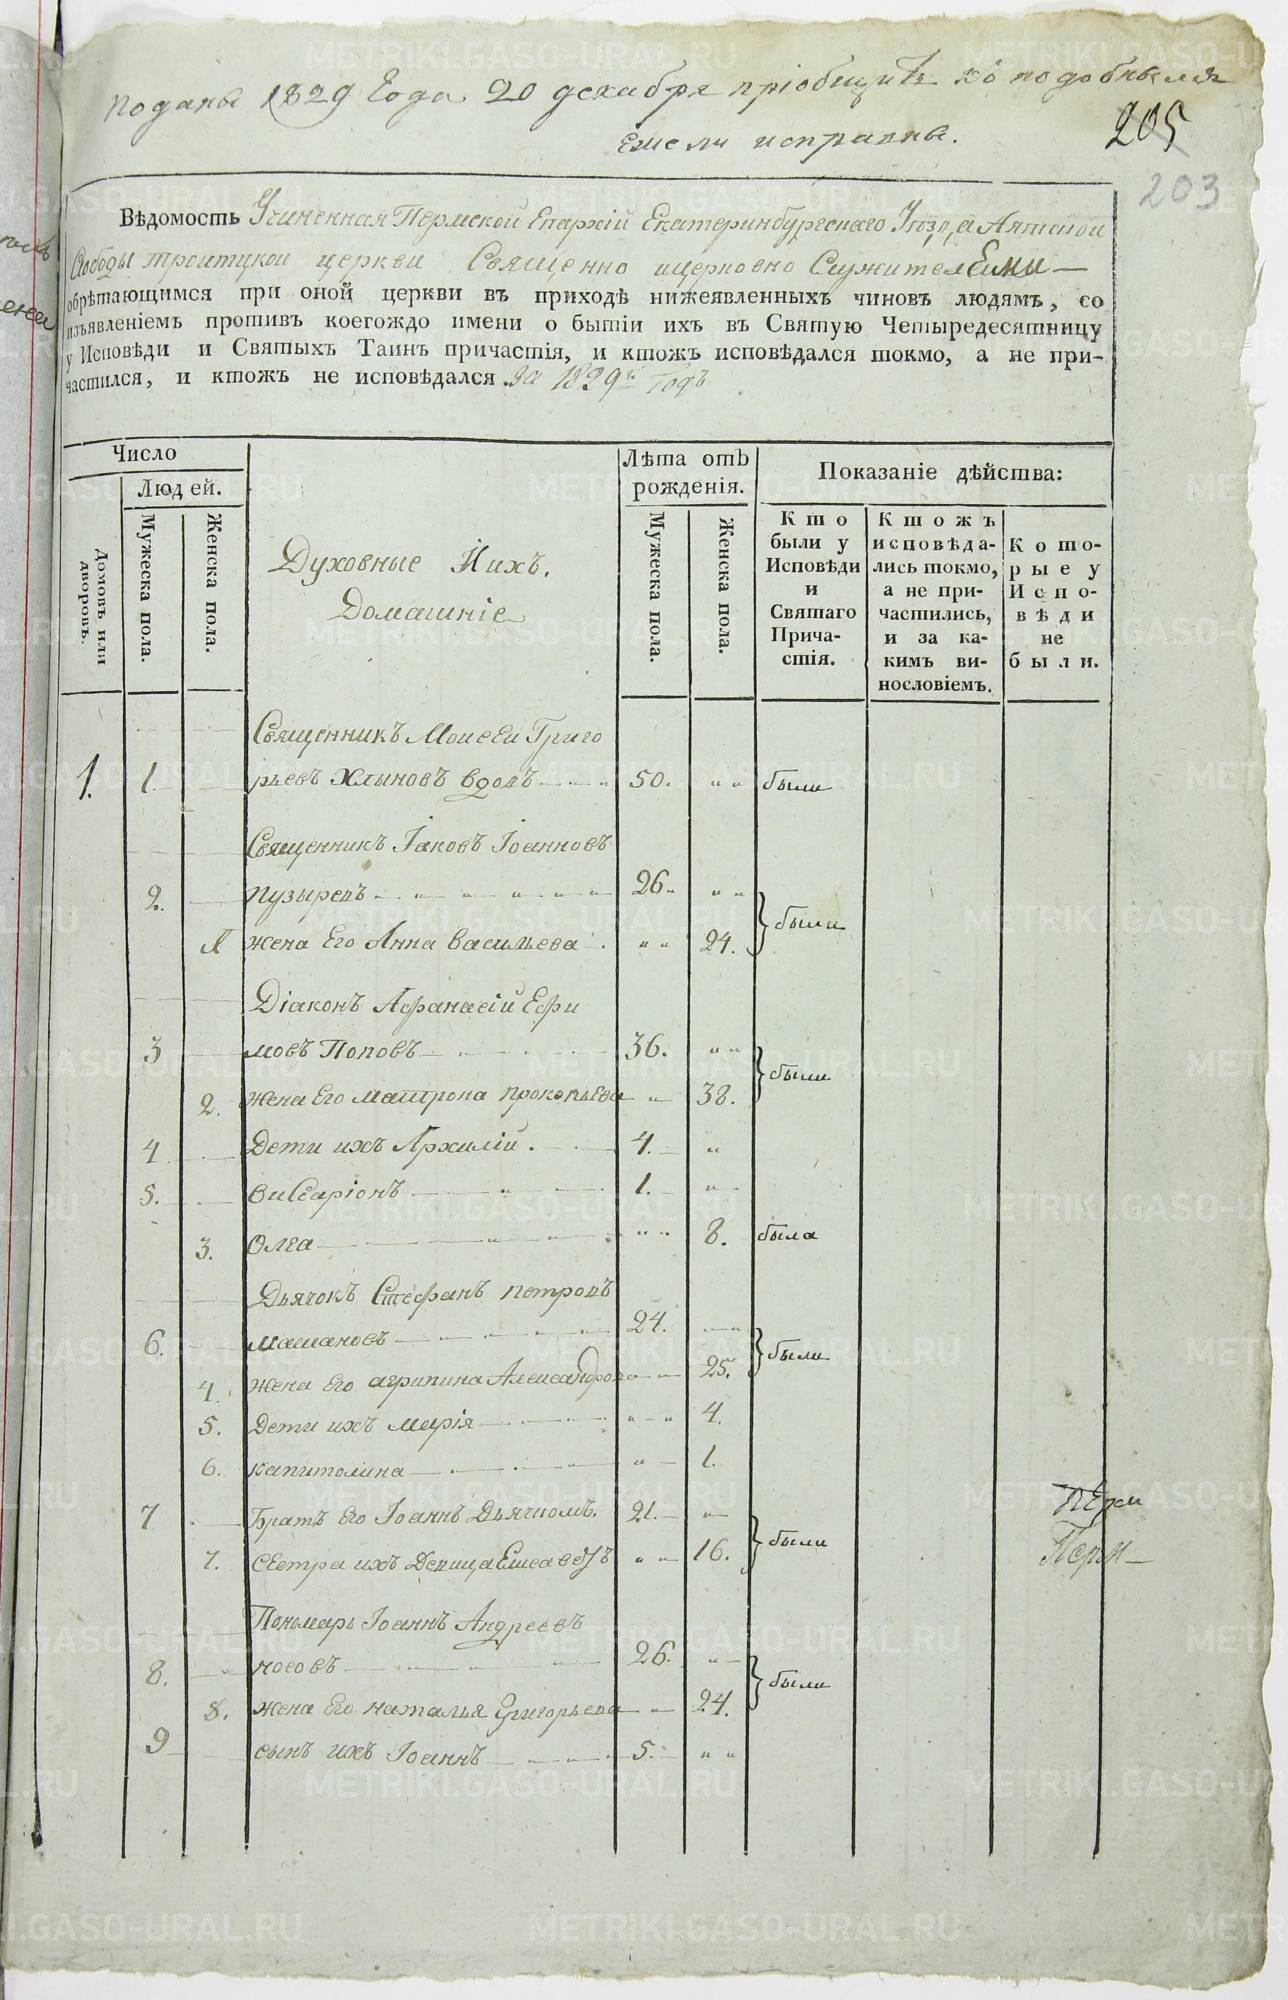 поданы 1829 Года 20 декабря пріобщить къ подобнымъ
ежели исправны.
205
203
Вѣдомость Учиненная Пермской Епархіи Екатеринбургскаго Уѣзда Аятской
Слободы троитцкой церкви Священно ицерковно Служителями
обрѣтающимся при оной церкви въ приходѣ нижеявленныхъ чиновъ людямъ, со
изъявленіемъ противъ коегождо имени о бытіи ихъ въ Святую Четыредесятницу
у Исповѣди и Святыхъ Таинъ причастія, и ктожъ исповѣдался токмо, а не при-
частился, и ктожъ не исповѣдался. За 1829й Годъ
Число
Людей.
домовъ или дворовъ.
Мужеска пола.
Женска пола.
Духовные Иихъ.
Домашніе
Лѣта отъ
рожденія.
Мужеска пола.
Женска пола.
Показаніе дѣйства:
Кто
были у
Исповѣди
и
Святаго
Прича-
стія.
Ктожъ
исповѣда-
лись токмо,
а не при-
частились,
и за ка-
кимъ ви-
нословіемъ.
Кото-
рые у
Испо-
вѣди
не
были.
Священникъ Моисеи Григо
1. 1. рьевъ Хлыновъ вдовъ 50. были
Священникъ Іаковъ Іоанновъ
2. Пузыревъ 26.
1 жена Его Анна васильева 24. были
Діаконъ Афанасій Ефи
3 мовъ Поповъ 36.
2. жена Его матрона прокопьева 38. были
4 Дети ихъ Архилій. 4.
5. виссаріонъ 1.
3. Олга 8. была
Дьячокъ Стефанъ петровъ
6. мамановъ 24.
4. жена Его агрипина Александрова 25. были
5. Дети ихъ марія 4.
6. капитолина 1.
7 Братъ Его Іоаннъ Дьячкомъ. 21.
7. сестра ихъ Девица Елисаветъ 16. были
Пономарь Іоаннъ Андреевъ
8. носовъ 26.
8. жена Его наталья Григорьева 24. были
9 сынъ ихъ Іоаннъ 5.
Перм
METRIKI.GASO-URAL.RU